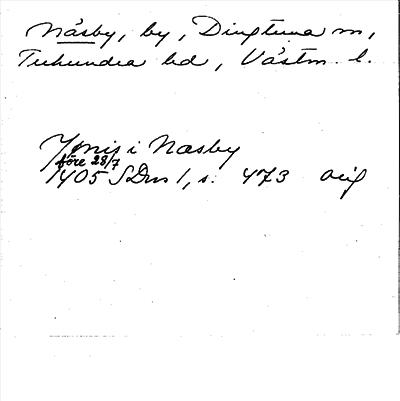 Näsby, by, Dingtuna sn,
Tuhundra hd, Västm. l.
Jönis i Næsby
före 28/7
1405 SDns 1, s. 473 orig